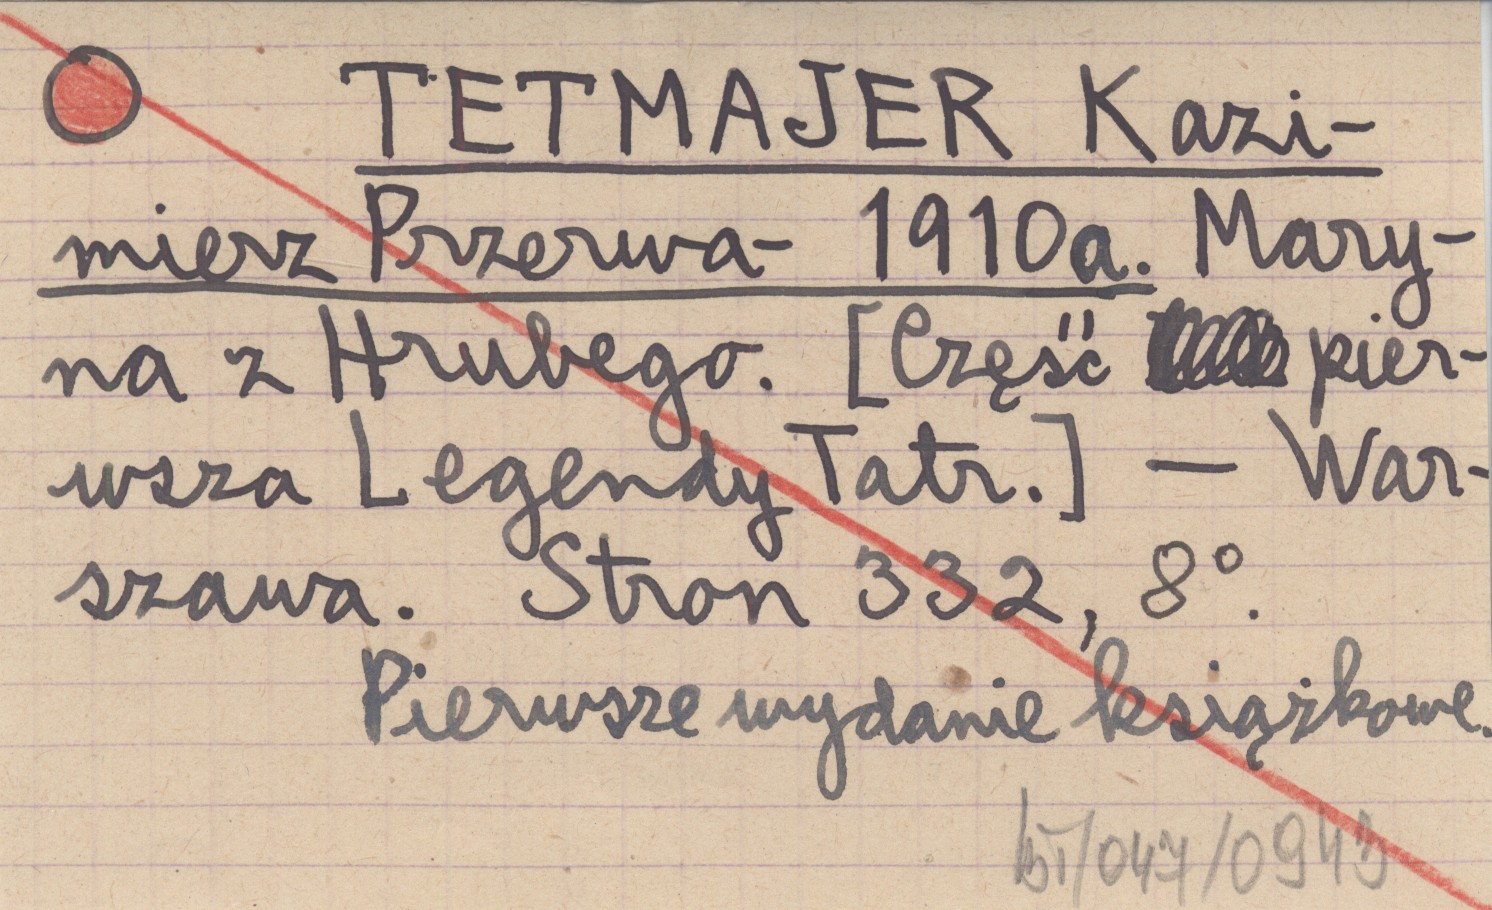 TETMAJER Kazi-
mierz Przerwa- 1910a. Mary-
na z Hrubego. [Część pier-
wsza Legendy Tatr.] — War-
szawa. Stron 332, 8°.
Pierwsze wydanie książkowe.
bT/047/0943